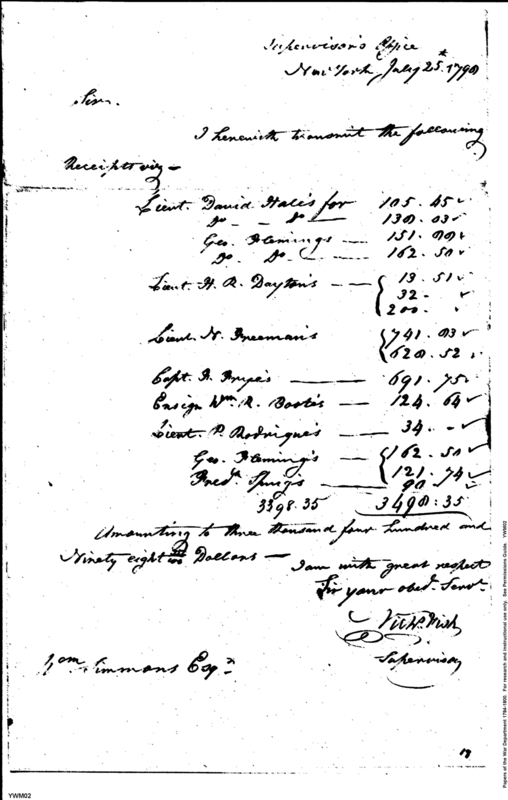 Supervisor's Office
New York July 25th 1798
Sir.
I herewith transmit the following
Receipts viz —
Lieut. David Hale's for 105.45
Do - - Do — 138.03
Geo. Flemings — 151.88
Do. Do. — 162.50
Lieut. H. R. Dayton's — 13.51
32 -
200 .
Lieut. N. Freeman's 741.83
628.52
Capt. F. Frye's — 691.75
Ensign Wm. R. Boote's — 124.64
Lieut. P. Rodrigue's — 34. -
Geo. Fleming's — 162.50
Fredk. 121.74
90
3398.35 3498:35
Amounting to three thousand four hundred and
Ninety eight Dollars —
I am with great respect
Sir your obed. Servt.
Nichs. Fish
Supervisor
Wm Simmons Esqr.
YWM02
Papers of the War Department 1784-1800. For research and instructional use only. See Permissions Guide. YWM02